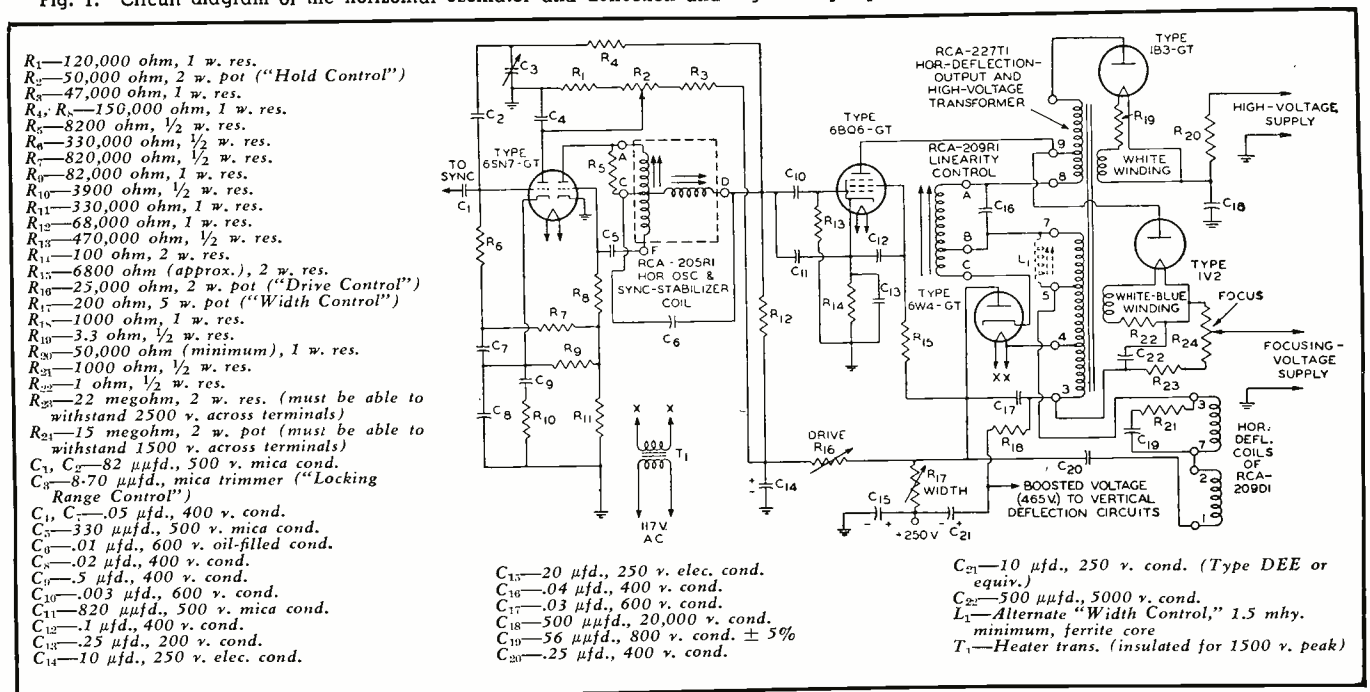 Fig. 1. Circuit diagram of the horizontal oscillator and deflection and
R₁—120,000 ohm, 1 w. res.
R₂—50,000 ohm, 2 w. pot ("Hold Control")
R₃—47,000 ohm, 1 w. res.
R₄, R₈—150,000 ohm, 1 w. res.
R₅—8200 ohm, ½ w. res.
R₆—330,000 ohm, ½ w. res.
R₇—820,000 ohm, ½ w. res.
R₉—82,000 ohm, 1 w. res.
R₁₀—3900 ohm, ½ w. res.
R₁₁—330,000 ohm, 1 w. res.
R₁₂—68,000 ohm, 1 w. res.
R₁₃—470,000 ohm, ½ w. res.
R₁₄—100 ohm, 2 w. res.
R₁₅—6800 ohm (approx.), 2 w. res.
R₁₆—25,000 ohm, 2 w. pot ("Drive Control")
R₁₇—200 ohm, 5 w. pot ("Width Control")
R₁₈—1000 ohm, 1 w. res.
R₁₉—3.3 ohm, ½ w. res.
R₂₀—50,000 ohm (minimum), 1 w. res.
R₂₁—1000 ohm, ½ w. res.
R₂₂—1 ohm, ½ w. res.
R₂₃—22 megohm, 2 w. res. (must be able to
withstand 2500 v. across terminals)
R₂₄—15 megohm, 2 w. pot (must be able to
withstand 1500 v. across terminals)
C₁, C₂—82 μμfd., 500 v. mica cond.
C₃—8-70 μμfd., mica trimmer ("Locking
Range Control")
C₄, C₇—.05 μfd., 400 v. cond.
C₅—330 μμfd., 500 v. mica cond.
C₆—.01 μfd., 600 v. oil-filled cond.
C₈—.02 μfd., 400 v. cond.
C₉—.5 μfd., 400 v. cond.
C₁₀—.003 μfd., 600 v. cond.
C₁₁—820 μμfd., 500 v. mica cond.
C₁₂—.1 μfd., 400 v. cond.
C₁₃—.25 μfd., 200 v. cond.
C₁₄—10 μfd., 250 v. elec. cond.
C₁₅—20 μfd., 250 v. elec. cond.
C₁₆—.04 μfd., 400 v. cond.
C₁₇—.03 μfd., 600 v. cond.
C₁₈—500 μμfd., 20,000 v. cond.
C₁₉—56 μμfd., 800 v. cond. ± 5%
C₂₀—.25 μfd., 400 v. cond.
C₂₁—10 μfd., 250 v. cond. (Type DEE or
equiv.)
C₂₂—500 μμfd., 5000 v. cond.
L₁—Alternate "Width Control," 1.5 mhy.
minimum, ferrite core
T₁—Heater trans. (insulated for 1500 v. peak)
R₄
C₃
R₁
R₂
R₃
C₂
C₄
TYPE
6SN7-GT
TO
SYNC
C₁
R₅
A
C
D
F
C₅
RCA-205R1
HOR OSC &
SYNC-STABILIZER
COIL
R₆
R₈
R₇
R₉
C₆
C₇
C₉
C₈
R₁₀
R₁₁
X
X
T₁
117 V.
AC
TYPE
6BQ6-GT
C₁₀
R₁₃
C₁₂
C₁₁
R₁₄
C₁₃
R₁₂
R₁₅
DRIVE
R₁₆
+
−
C₁₄
R₁₇
WIDTH
C₁₅
−
+
−
+
C₂₁
+250 V
BOOSTED VOLTAGE
(465V.) TO VERTICAL
DEFLECTION CIRCUITS
RCA-227T1
HOR.-DEFLECTION-
OUTPUT AND
HIGH-VOLTAGE
TRANSFORMER
RCA-209R1
LINEARITY
CONTROL
A
B
C
C₁₆
TYPE
6W4-GT
X X
L₁
9
8
7
5
4
3
C₁₇
R₁₈
C₂₀
TYPE
1B3-GT
R₁₉
R₂₀
WHITE
WINDING
HIGH-VOLTAGE
SUPPLY
C₁₈
TYPE
1V2
WHITE-BLUE
WINDING
FOCUS
R₂₂
R₂₄
C₂₂
R₂₃
FOCUSING-
VOLTAGE
SUPPLY
R₂₁
C₁₉
3
7
2
1
HOR.
DEFL.
COILS
OF
RCA-
209D1